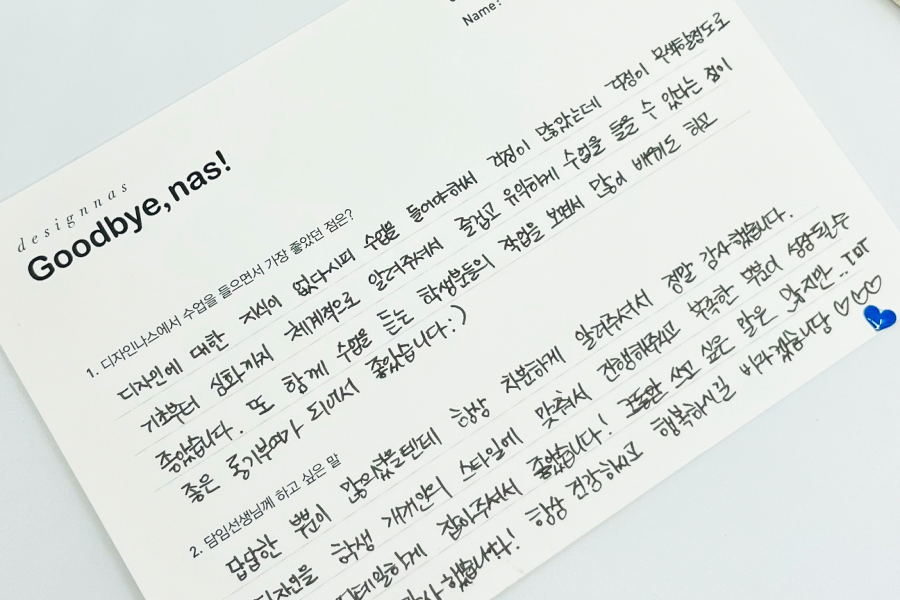 Name:
designnas
Goodbye, nas!
1. 디자인나스에서 수업을 들으면서 가장 좋았던 점은?
디자인에 대한 지식이 없다시피 수업을 들어야해서 걱정이 많았는데 걱정이 무색할정도로
기초부터 심화까지 체계적으로 알려주셔서 즐겁고 유익하게 수업을 들을 수 있었다는 점이
좋았습니다. 또 함께 수업을 듣는 학생분들의 작업을 보면서 많이 배우기도 하고
좋은 동기부여가 되어서 좋았습니다:)
2. 담임선생님께 하고 싶은 말
답답한 부분이 많으셨을텐데 항상 차분하게 알려주셔서 정말 감사했습니다.
디자인을 학생 개개인의 스타일에 맞춰서 진행해주시고 부족한 부분이 성장될수
디테일하게 잡아주셔서 좋았습니다! 쓰고 싶은 말은 많지만..ㅠㅠ
감사했습니다! 항상 건강하시고 행복하시길 바라겠습니당 ♡♡♡